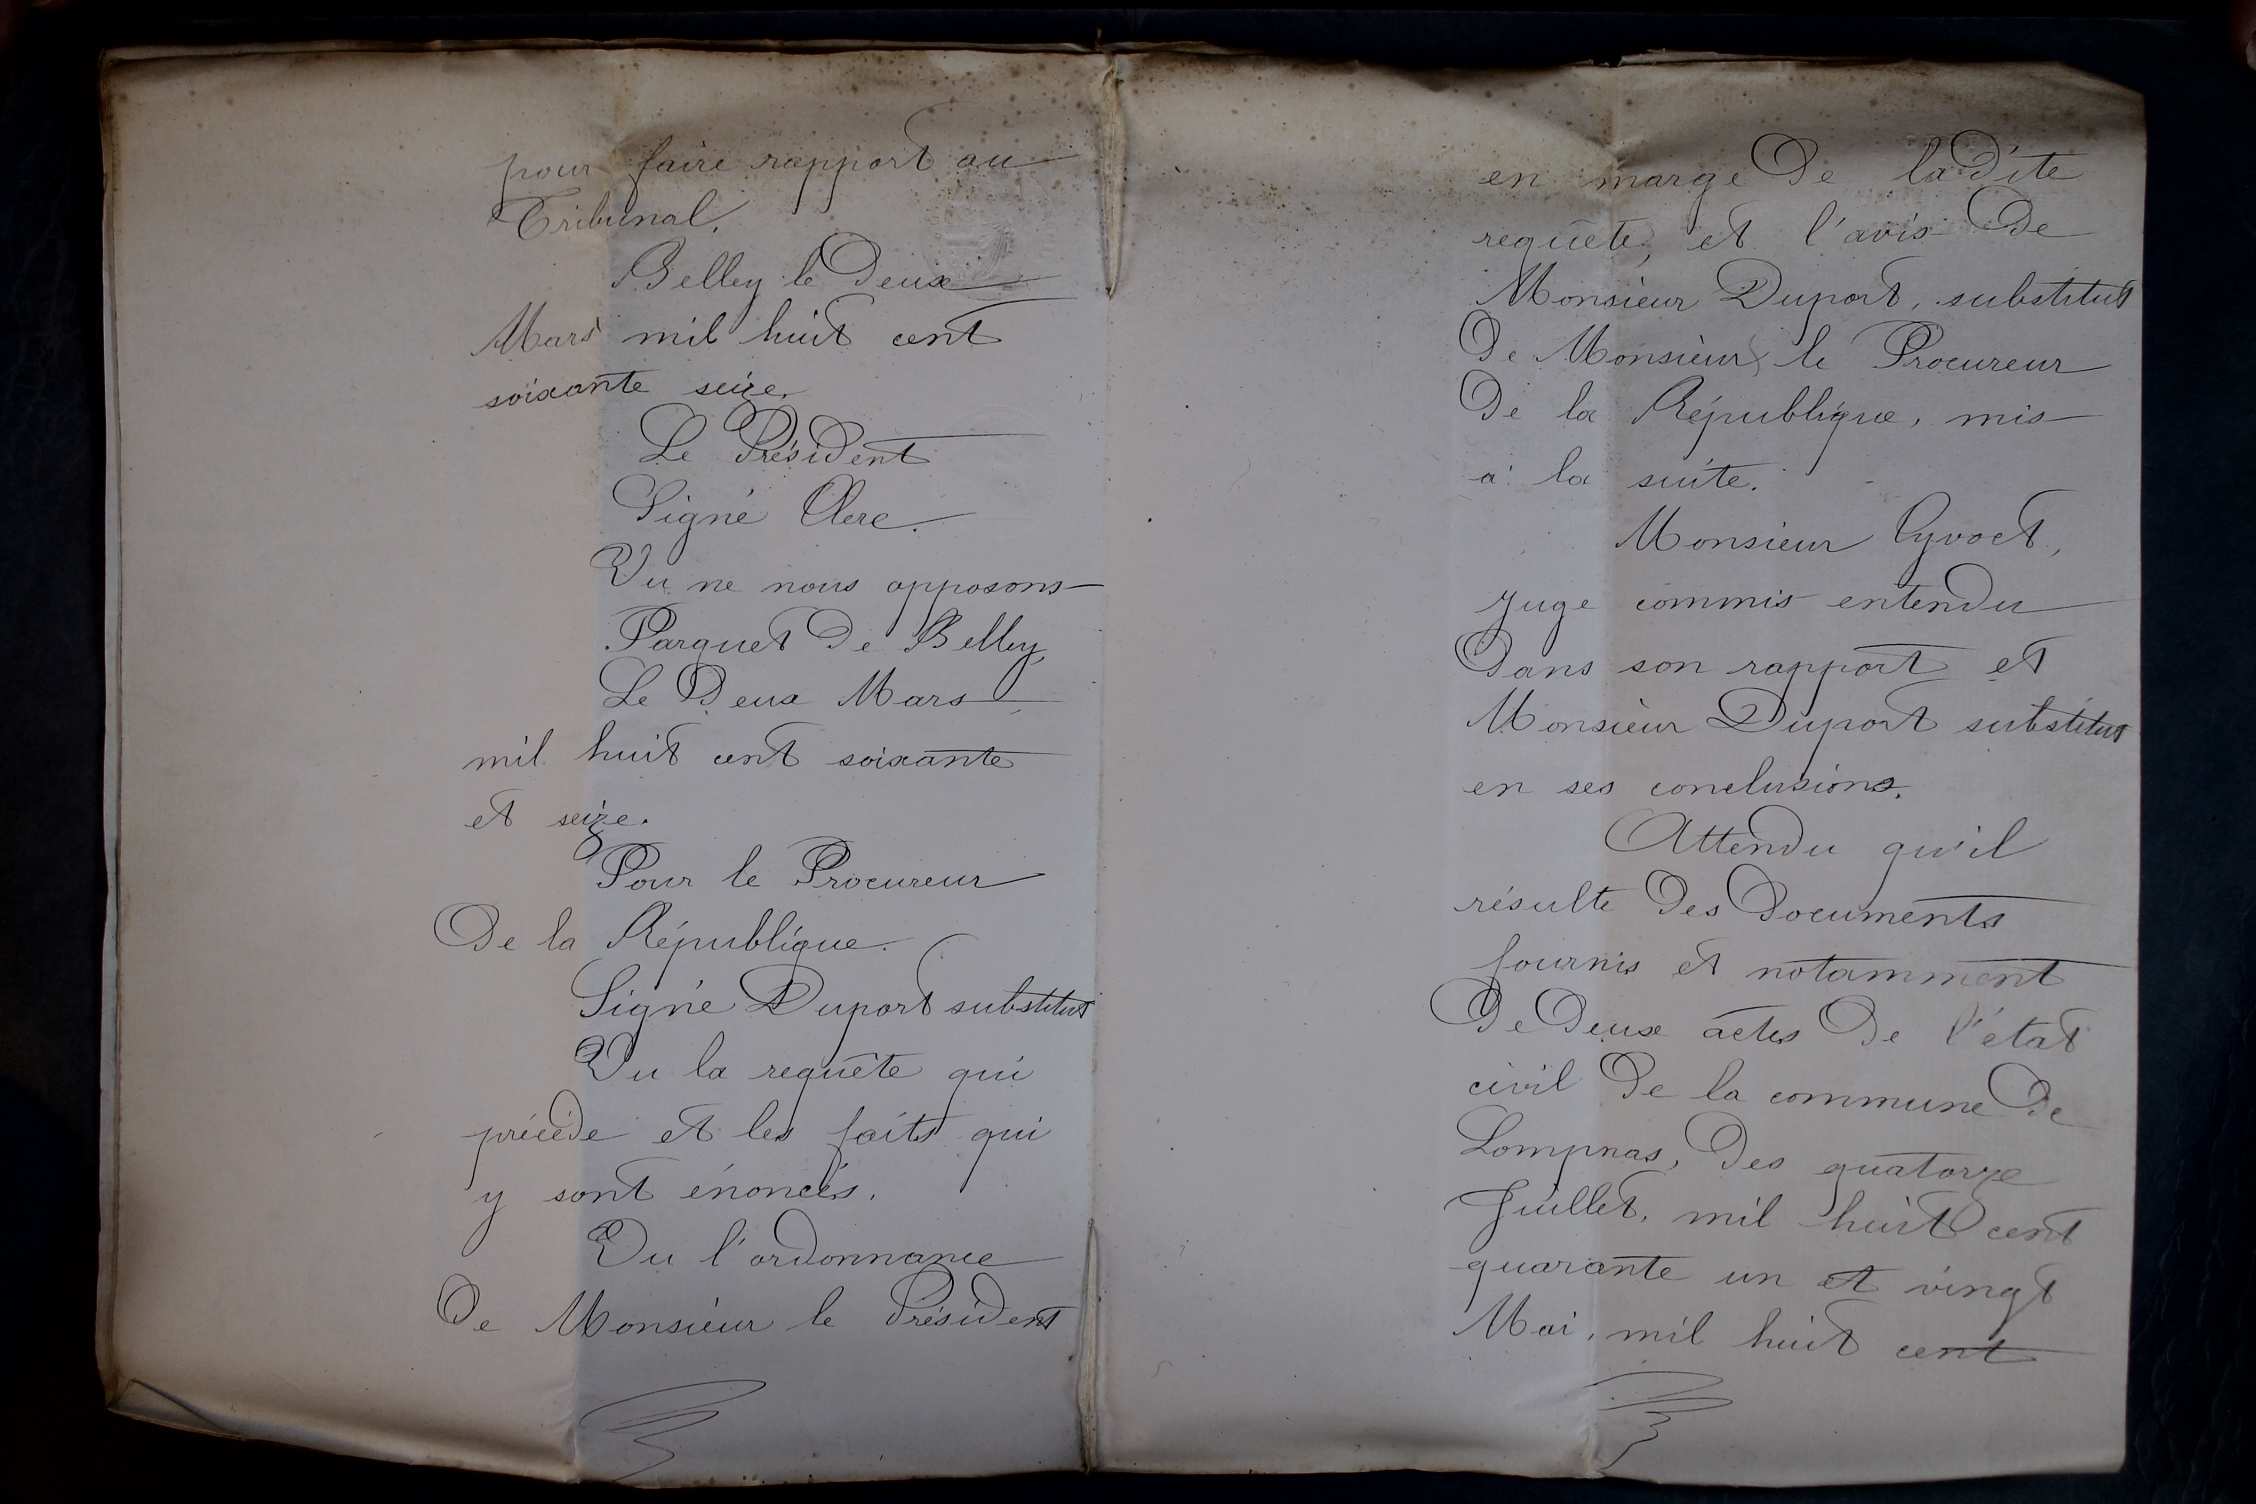 pour faire rapport au
Tribunal.
Belley le Deux
Mars mil huit cent
soixante seize.
Le Président
Signé Clerc.
Vu ne nous opposons
Parquet De Belley,
Le Deux Mars
mil huit cent soixante
et seize.
Pour le Procureur
De la République.
Signé Duport substitut
Vu la requête qui
précède et les faits qui
y sont énoncés.
Vu l'ordonnance
De Monsieur le Président
en marge De la Dite
requête, et l'avis De
Monsieur Duport, substitut
De Monsieur le Procureur
De la République, mis
à la suite.
Monsieur Cyvoct,
Juge commis entendu
Dans son rapport et
Monsieur Duport substitut
en ses conclusions.
Attendu qu'il
résulte Des Documents
fournis et notamment
De Deux actes De l'état
civil De la commune De
Lompnas, Des quatorze
Juillet, mil huit cent
quarante un et vingt
Mai, mil huit cent